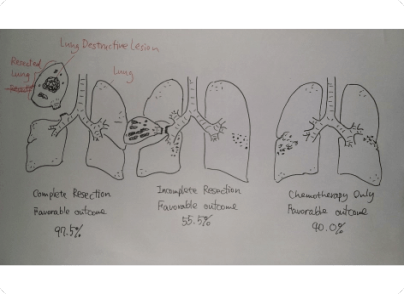 Lung Destructive Lesion
Resected
Lung
Lung
Complete Resection
Favorable outcome
97.5%
Incomplete Resection
Favorable outcome
55.5%
Chemotherapy Only
Favorable outcome
40.0%